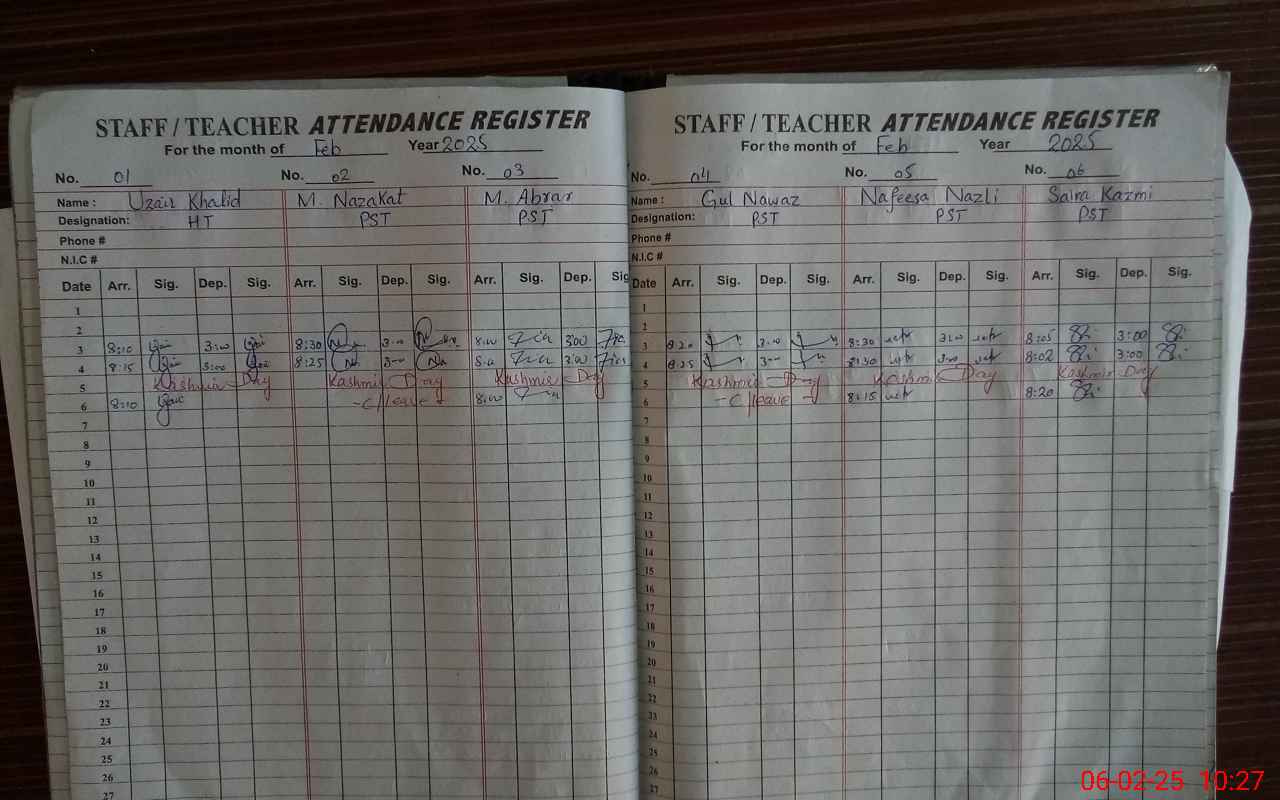 STAFF / TEACHER ATTENDANCE REGISTER
For the month of Feb Year 2025
No. 01 No. 02 No. 03
Name : Uzair Khalid M. Nazakat M. Abrar
Designation: HT PST PST
Phone #
N.I.C #
Date Arr. Sig. Dep. Sig. Arr. Sig. Dep. Sig. Arr. Sig. Dep. Sig
1
2
3 8:10 3:00 8:30 3:00 8:00 3:00
4 8:15 3:00 8:25 3:00 8:00 3:00
5 Kashmir Day Kashmir Day Kashmir Day
6 8:10 - C/leave - 8:00
7
8
9
10
11
12
13
14
15
16
17
18
19
20
21
22
23
24
25
26
27
STAFF / TEACHER ATTENDANCE REGISTER
For the month of Feb Year 2025
No. 04 No. 05 No. 06
Name : Gul Nawaz Nafeesa Nazli Saira Kazmi
Designation: PST PST PST
Phone #
N.I.C #
Date Arr. Sig. Dep. Sig. Arr. Sig. Dep. Sig. Arr. Sig. Dep. Sig.
1
2
3 8:20 3:00 8:30 3:00 8:05 3:00
4 8:25 3:00 8:30 3:00 8:02 3:00
5 Kashmir Day Kashmir Day Kashmir Day
6 - C/leave - 8:15 8:20
7
8
9
10
11
12
13
14
15
16
17
18
19
20
21
22
23
24
25
26
27
06-02-25 10:27